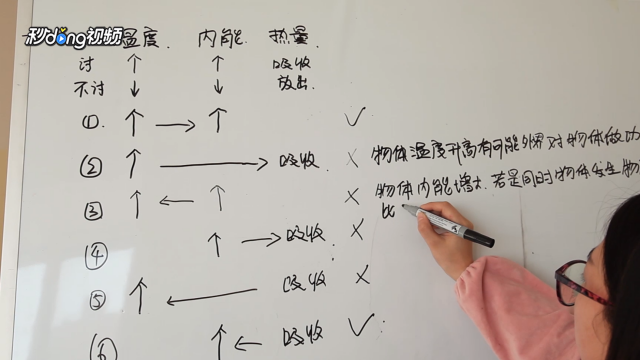 秒dong视频
温度 内能 热量
讨 ↑ ↑ 吸收
不讨 ↓ ↓ 放出
① ↑ → ↑ ✓
② ↑ → 吸收 × 物体温度升高有可能外界对物体做功
③ ↑ ← ↑ × 物体内能增大.若是同时物体发生物
④ ↑ → 吸收 ×
⑤ ↑ ← 吸收 ×
⑥ ↑ ← 吸收 ✓